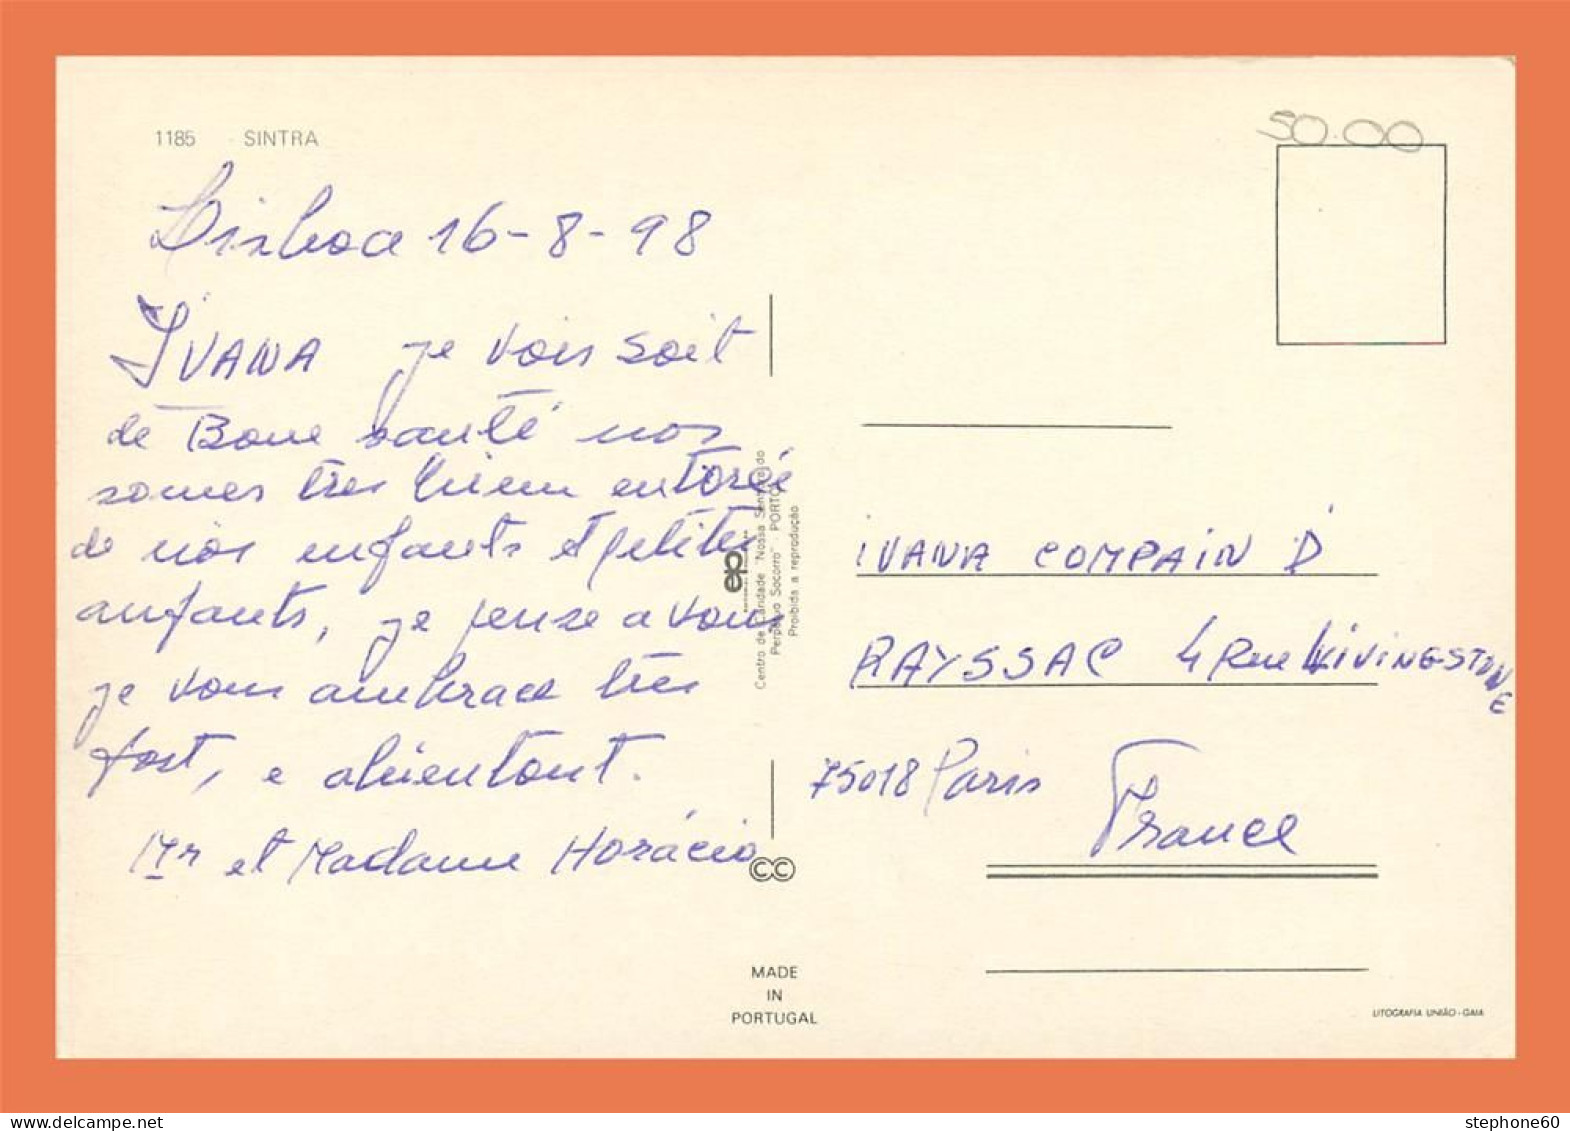 1185 - SINTRA
50.00
Lisboa 16-8-98
IVANA je vois soit
de Bone santé nos
somes tres biem entoréé
de nos enfants et petites
anfants, je pense a vous
je vous ambrace tres
fort, e abientout.
Mr et Madame Horácio
Centro de Caridade "Nossa Senhora do
Perpétuo Socorro" - PORTO
Proibida a reprodução
ep
CC
IVANA COMPAIN D'
RAYSSAC 4 Rue LIVINGSTONE
75018 Paris
France
MADE
IN
PORTUGAL
LITOGRAFIA UNIÃO - GAIA
stephone60